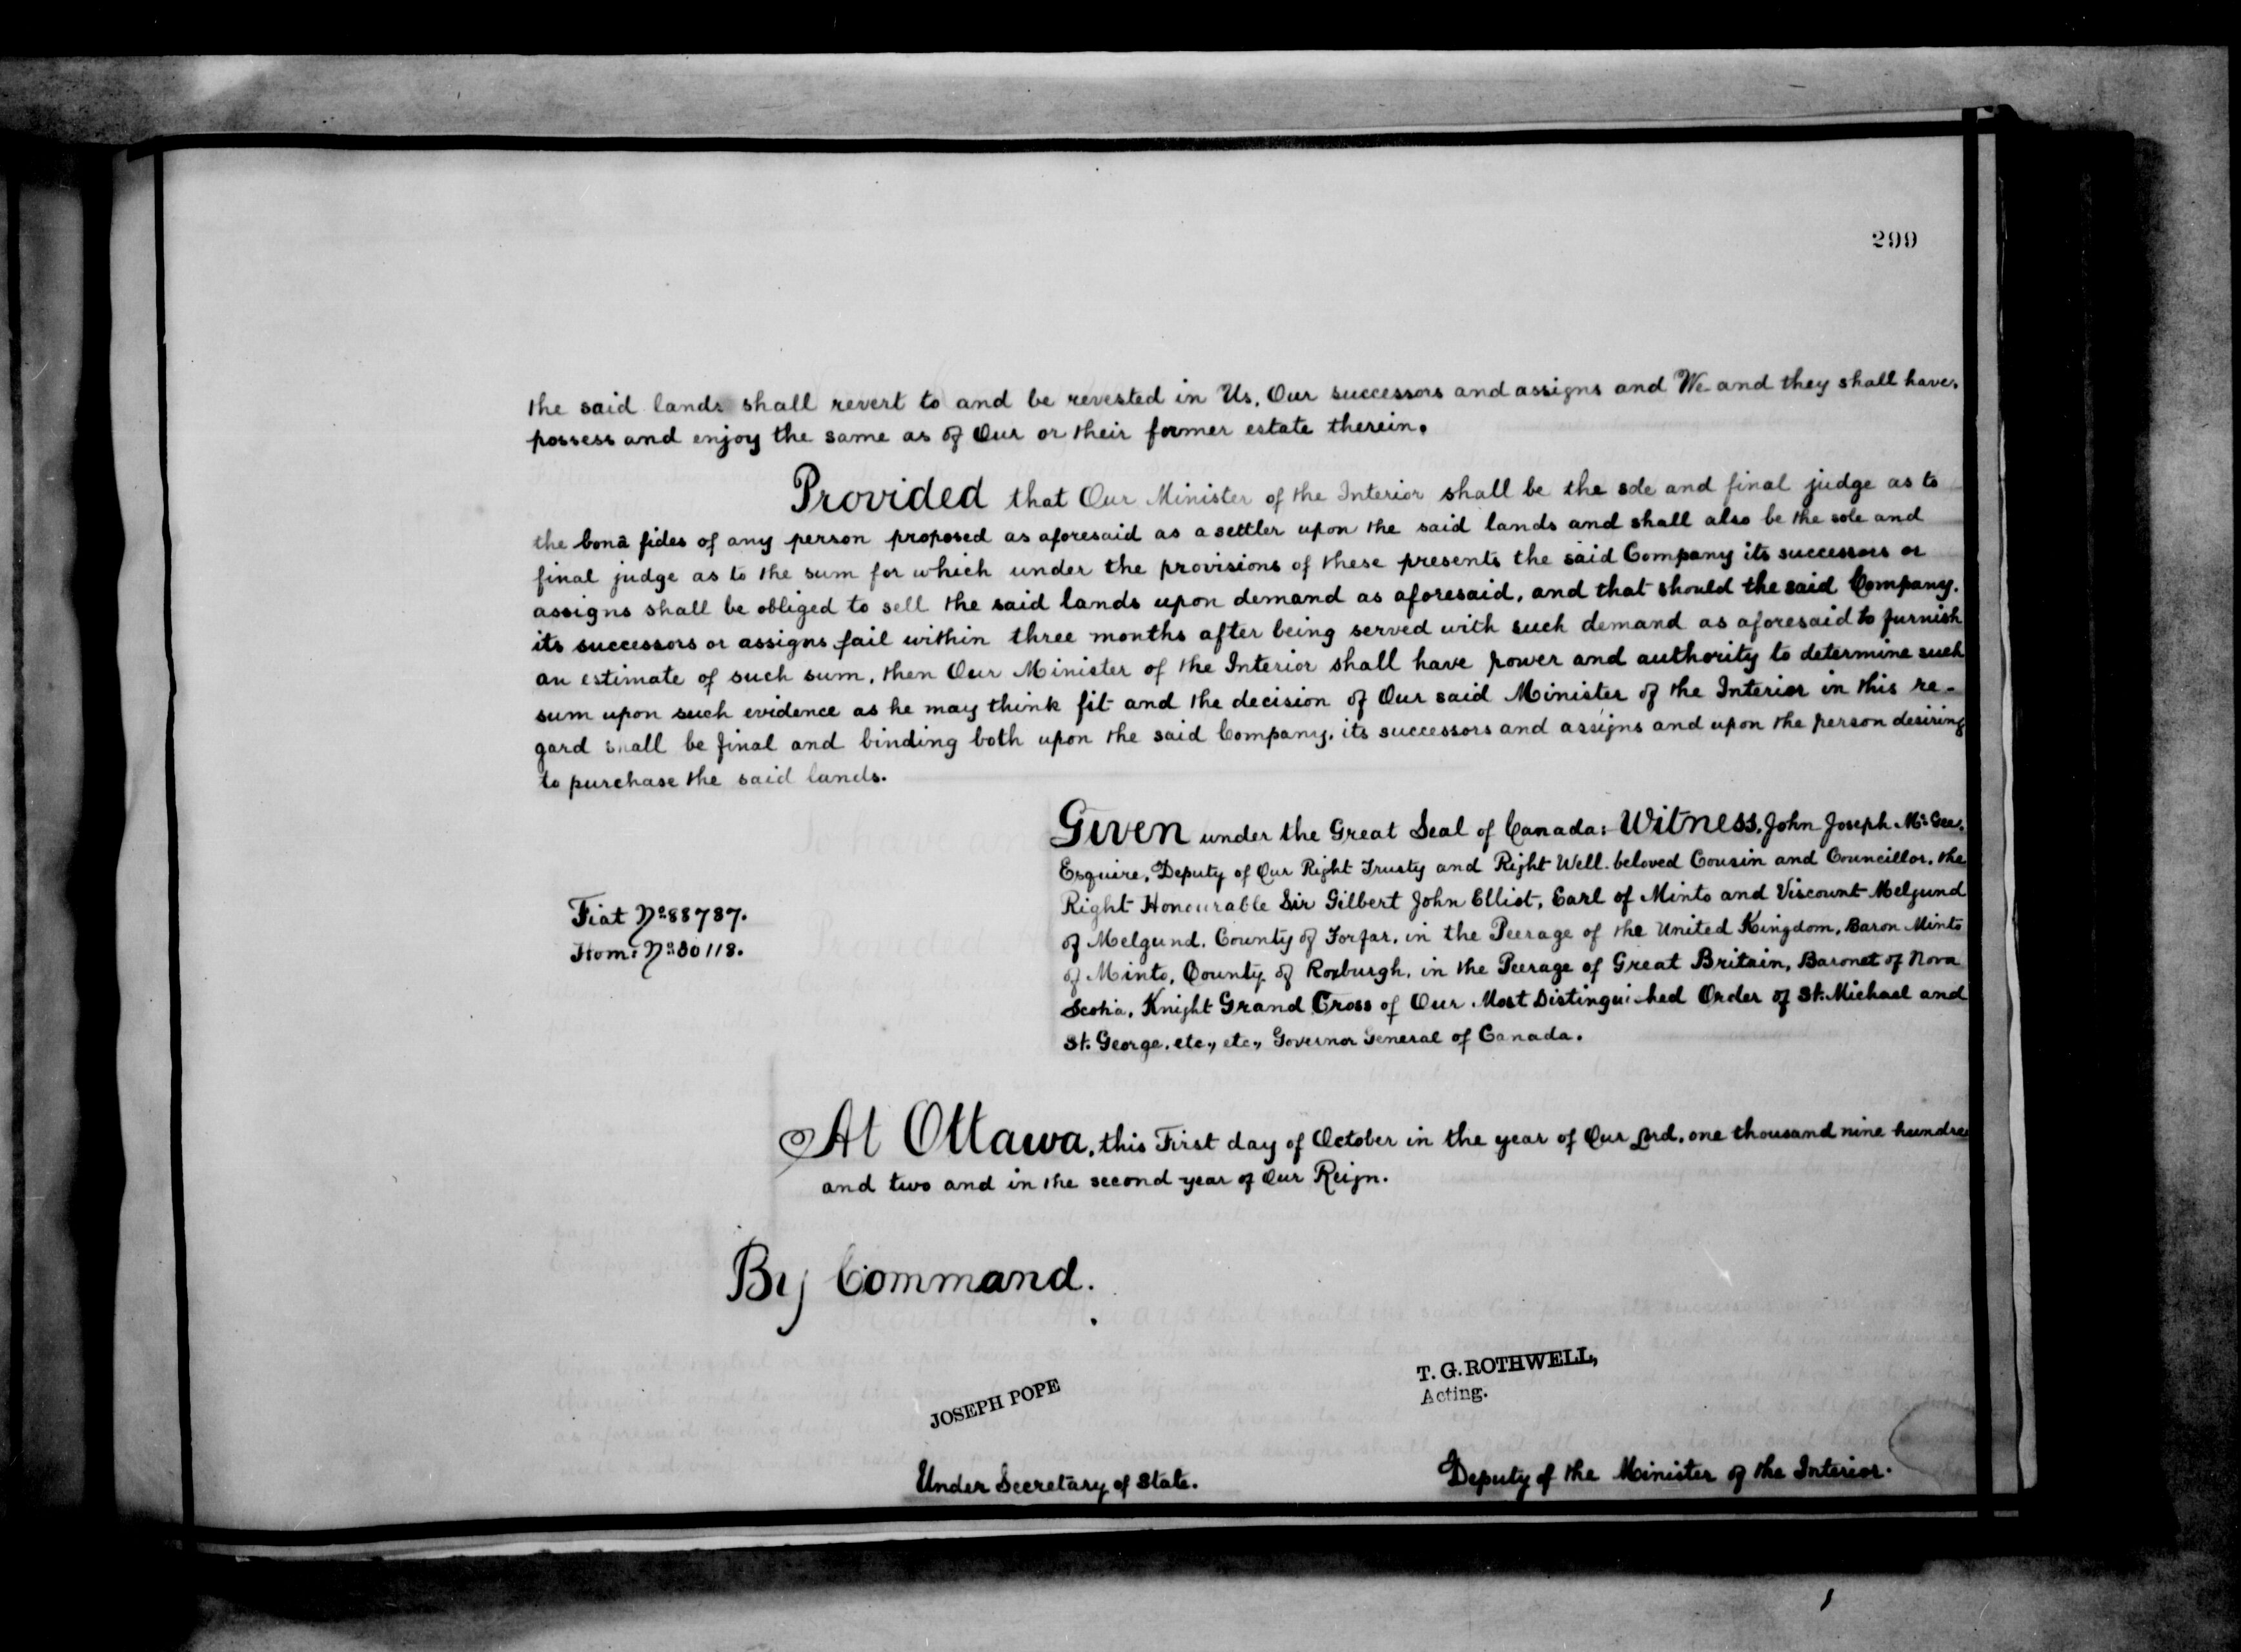 299
the said lands shall revert to and be revested in Us, Our successors and assigns and We and they shall have,
possess and enjoy the same as of Our or their former estate therein.
Provided that Our Minister of the Interior shall be the sole and final judge as to
the bonâ fides of any person proposed as aforesaid as a settler upon the said lands and shall also be the sole and
final judge as to the sum for which under the provisions of these presents the said Company its successors or
assigns shall be obliged to sell the said lands upon demand as aforesaid, and that should the said Company,
its successors or assigns fail within three months after being served with such demand as aforesaid to furnish
an estimate of such sum, then Our Minister of the Interior shall have power and authority to determine such
sum upon such evidence as he may think fit and the decision of Our said Minister of the Interior in this re-
gard shall be final and binding both upon the said Company, its successors and assigns and upon the person desiring
to purchase the said lands.
Given under the Great Seal of Canada: Witness, John Joseph McGee,
Esquire, Deputy of Our Right Trusty and Right Well-beloved Cousin and Councillor, the
Right Honourable Sir Gilbert John Elliot, Earl of Minto and Viscount Melgund
of Melgund, County of Forfar, in the Peerage of the United Kingdom, Baron Minto
of Minto, County of Roxburgh, in the Peerage of Great Britain, Baronet of Nova
Scotia, Knight Grand Cross of Our Most Distinguished Order of St. Michael and
St. George, etc., etc., Governor General of Canada.
Fiat No. 88787.
Hom: No. 80118.
At Ottawa, this First day of October in the year of Our Lord, one thousand nine hundred
and two and in the second year of Our Reign.
By Command.
T. G. ROTHWELL,
Acting.
JOSEPH POPE
Under Secretary of State.
Deputy of the Minister of the Interior.